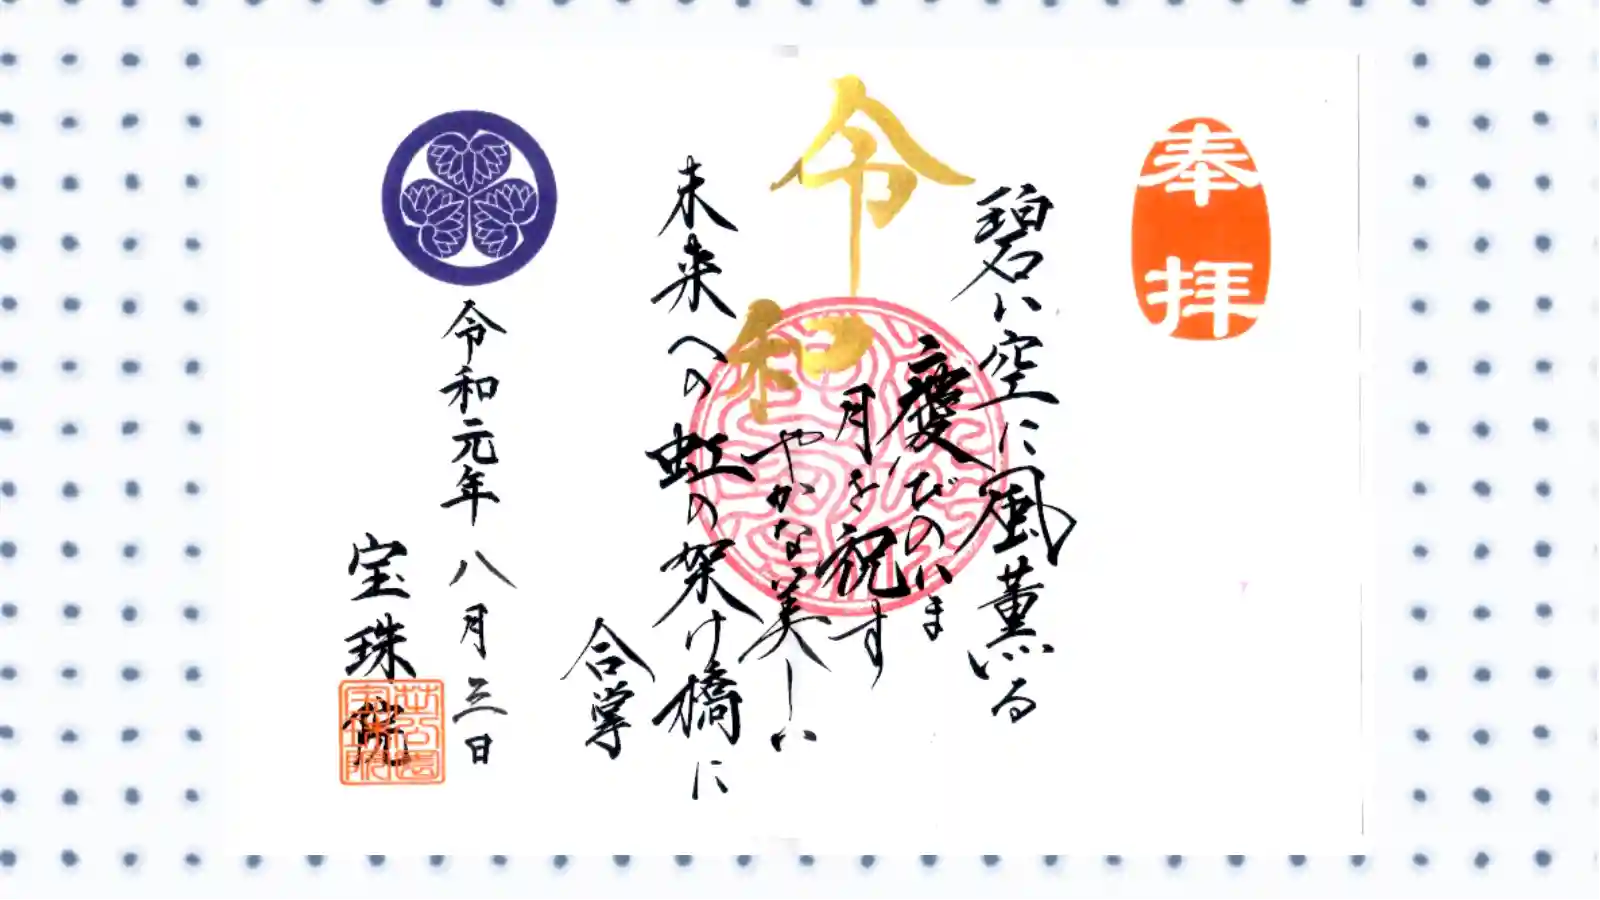 奉拝
碧い空に風薫る
慶びのいま
令月を祝す
和やかな美しい
未来への虹の架け橋に
合掌
令和元年 八月三日
宝珠院
芝公園
宝珠院